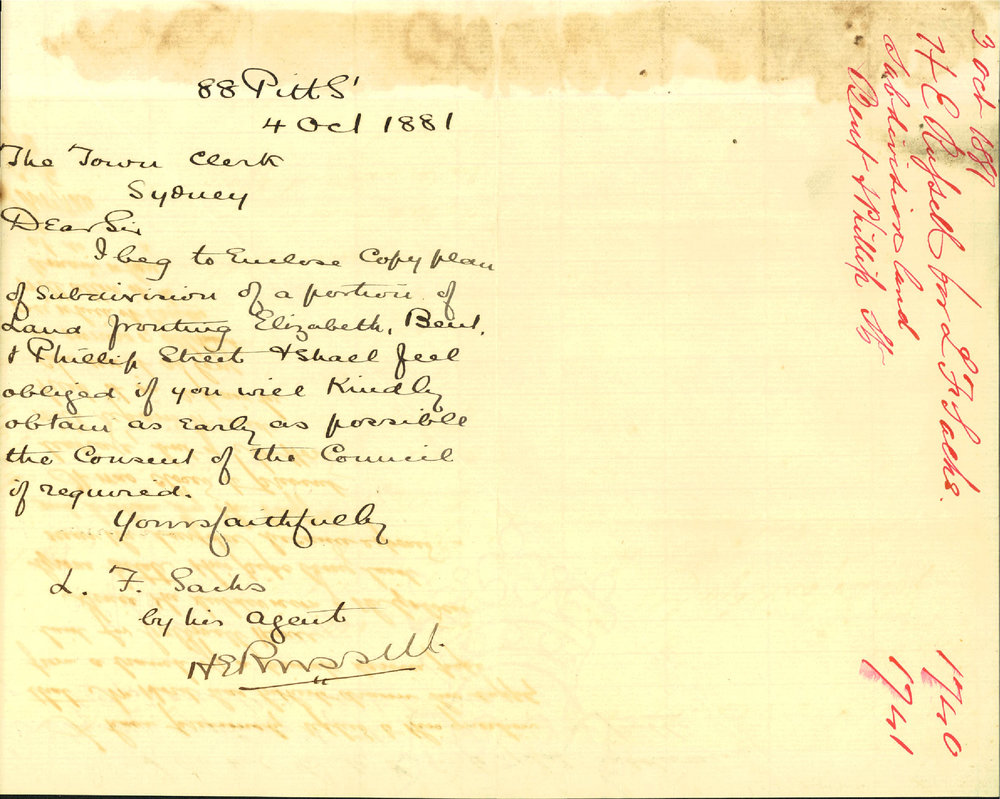 88 Pitt St
4 Oct 1881
The Town Clerk
Sydney
Dear Sir
I beg to Enclose Copy plan
of Subdivision of a portion of
Land fronting Elizabeth, Bent,
& Phillip Street & shall feel
obliged if you will Kindly
obtain as Early as possible
the Consent of the Council
if required.
Yours faithfully
L. F. Sachs
by his agent
HERussell.
3 Oct 1881
H E Russell for L F Sachs.
Subdivision land
Bent & Phillip St
1740
1741